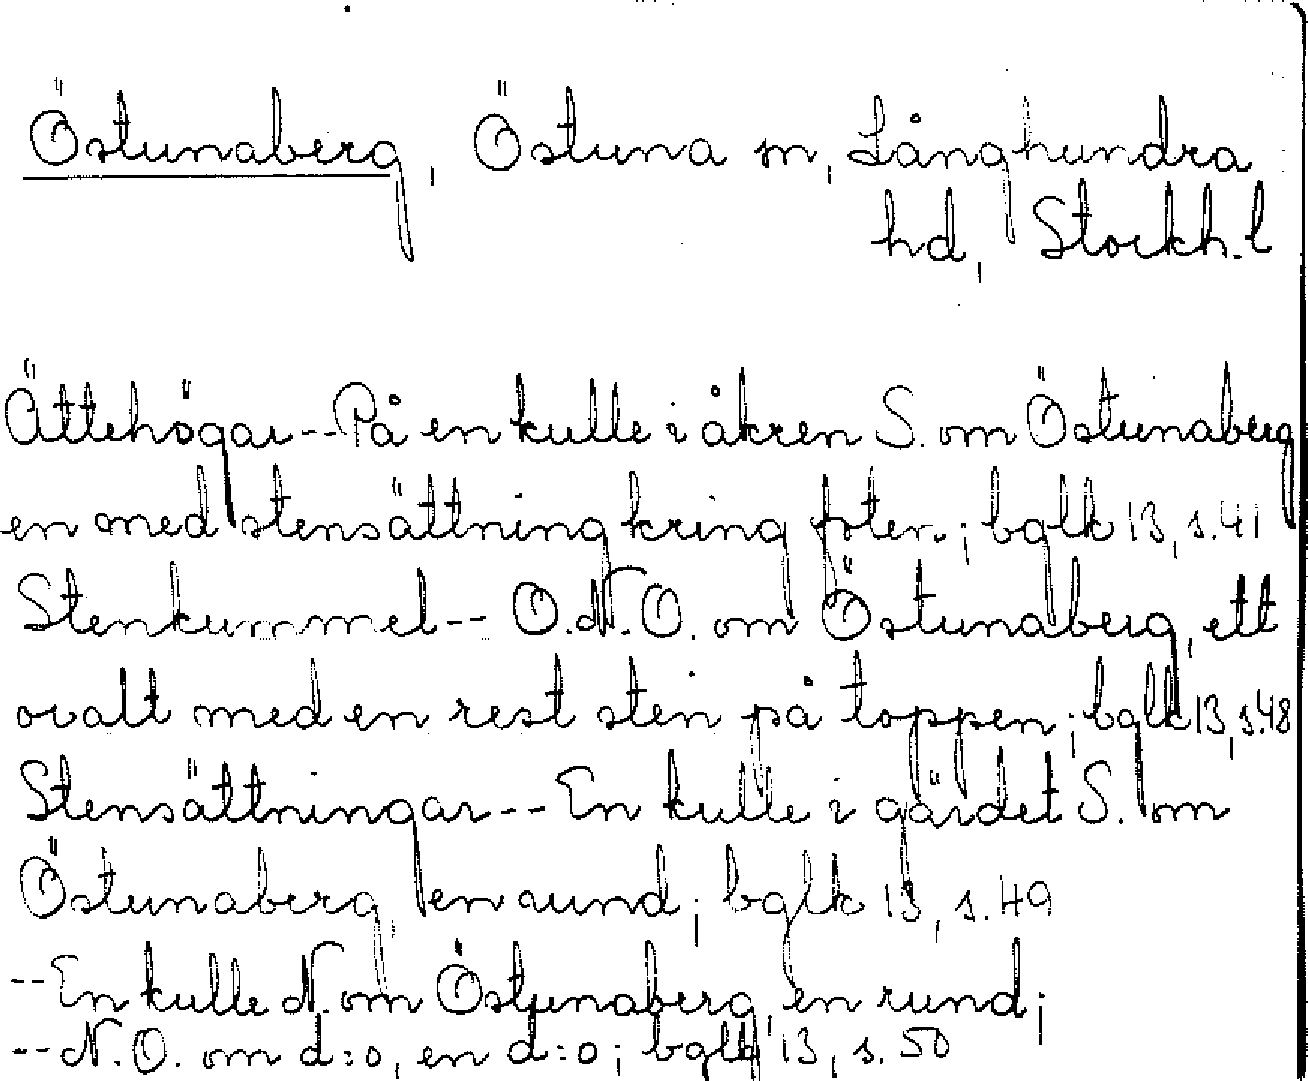 Östunaberg, Östuna sn, Långhundra
hd, Stockh.l
Ättehögar--På en kulle i åkren S. om Östunaberg
en med stensättning kring foten.; bglk 13, s.41
Stenkummel-- O.N.O. om Östunaberg, ett
ovalt med en rest sten på toppen; bglk 13, s.48
Stensättningar--En kulle i gärdet S. om
Östunaberg, en rund; bglk 13, s.49
--En kulle N. om Östunaberg en rund;
--N.O. om d:o, en d:o; bglk 13, s. 50